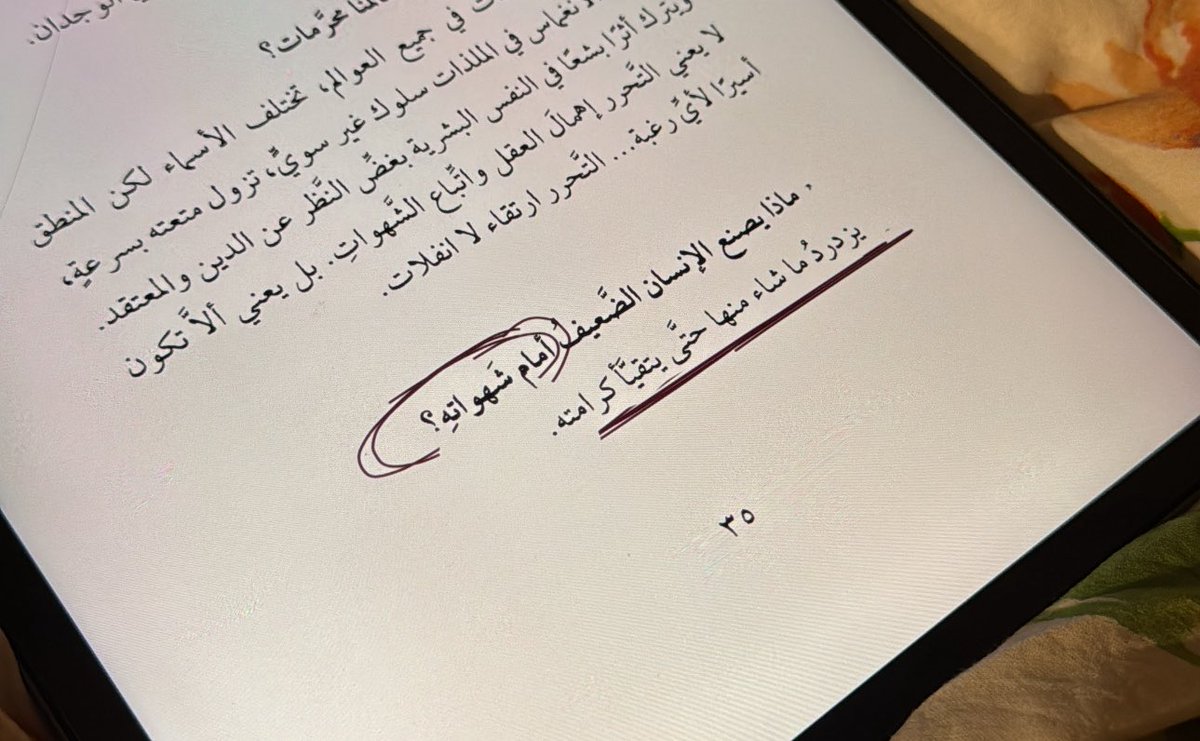 الوجدان.
محرَّمات؟
في جميع العوالم، تختلف الأسماء لكن المنطق
الانغماس في الملذات سلوك غير سويٍّ، تزول متعته بسرعةٍ،
ويترك أثرًا بشعًا في النفس البشرية بغضِّ النَّظر عن الدين والمعتقد.
لا يعني التَّحرر إهمالَ العقل واتِّباع الشَّهواتِ. بل يعني ألاَّ تكون
أسيرًا لأيِّ رغبة... التَّحرر ارتقاء لا انفلات.
, ماذا يصنع الإنسان الضَّعيفُ أمام شَهواتهِ؟
يزدردُ ما شاء منها حتَّى يتقيَّأ كرامته.
٣٥